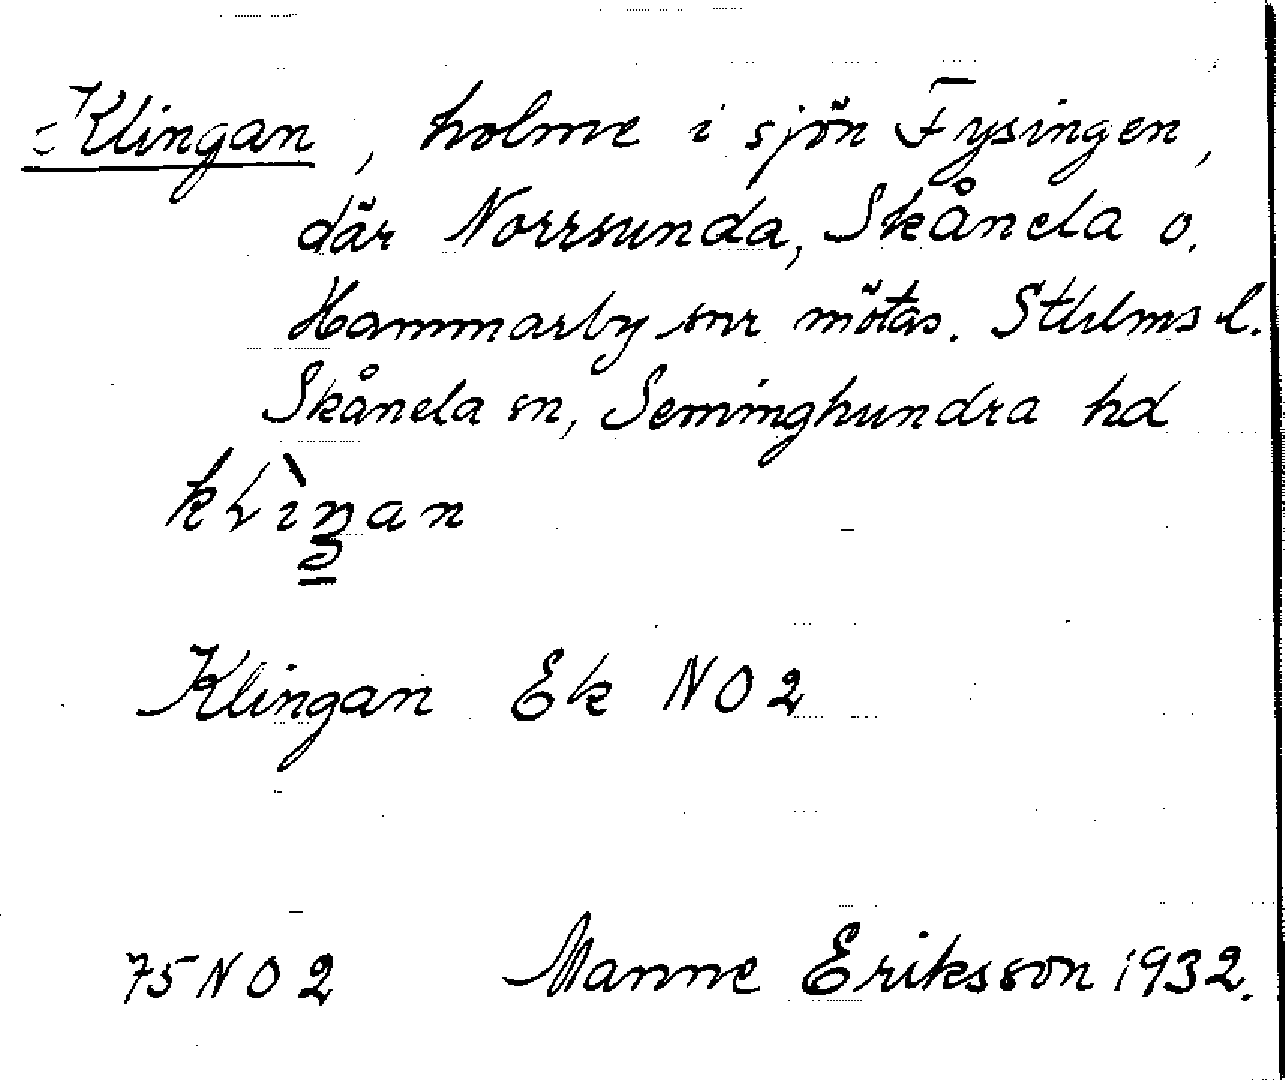 Klingan, holme i sjön Fysingen,
där Norrsunda, Skånela o.
Hammarby snr mötas. Sthlms l.
Skånela sn, Seminghundra hd
Klingan Ek NO2
75 NO2 Manne Eriksson 1932.